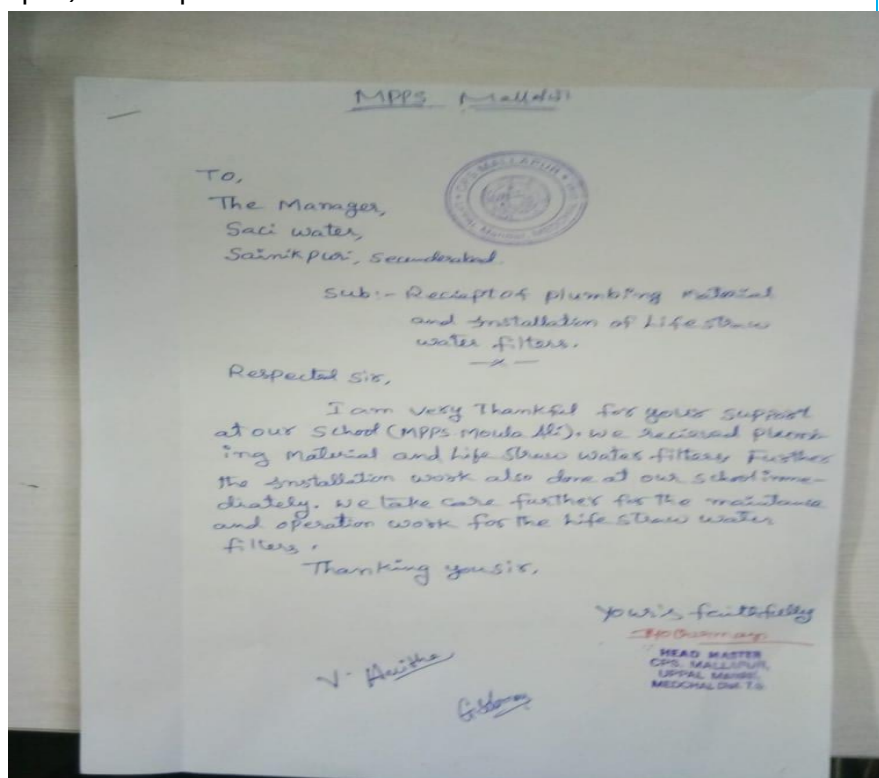 MPPS
CPS MALLAPUR
UPPAL Mandal, MEDCHAL
To,
The Manager,
Saci water,
Sainikpuri, Secunderabad.
Sub:- Reciept of plumbing material
and Installation of Life straw
water filters.
Respected Sir,
I am very Thankful for your support
at our School (MPPS Moula Ali). We recieved plumb-
ing Material and Life Straw water filters, Further
the Installation work also done at our school imme-
diately. We take care further for the maintance
and operation work for the Life Straw water
filters.
Thanking you sir,
Your's faithfully
HEAD MASTER
CPS. MALLAPUR,
UPPAL Mandal,
MEDCHAL Dist. T.S
V. Anitha